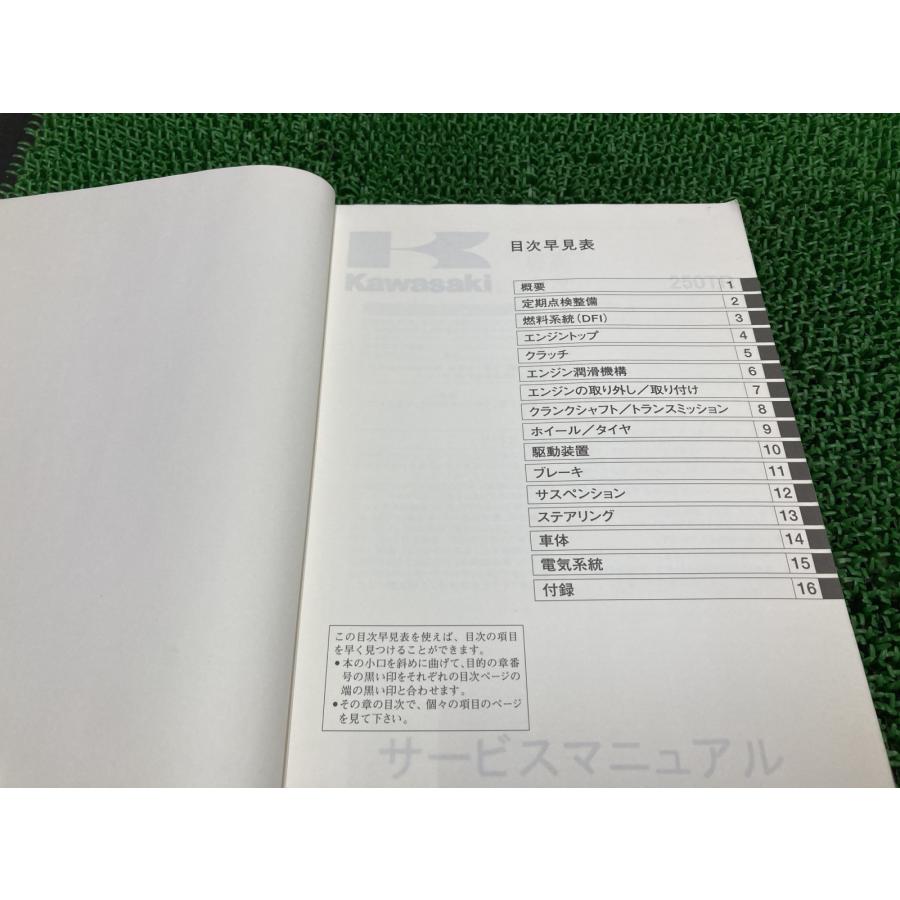 目次早見表
Kawasaki
250TR
概要 1
定期点検整備 2
燃料系統(DFI) 3
エンジントップ 4
クラッチ 5
エンジン潤滑機構 6
エンジンの取り外し/取り付け 7
クランクシャフト/トランスミッション 8
ホイール/タイヤ 9
駆動装置 10
ブレーキ 11
サスペンション 12
ステアリング 13
車体 14
電気系統 15
付録 16
この目次早見表を使えば、目次の項目
を早く見つけることができます。
●本の小口を斜めに曲げて、目的の章番
号の黒い印をそれぞれの目次ページの
端の黒い印と合わせます。
●その章の目次で、個々の項目のページ
を見て下さい。
サービスマニュアル